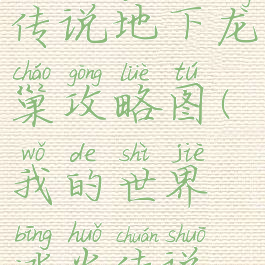 传说地下龙
cháo gōng lüè tú
巢攻略图(
wǒ de shì jiè
我的世界
bīng huǒ chuán shuō
冰火传说